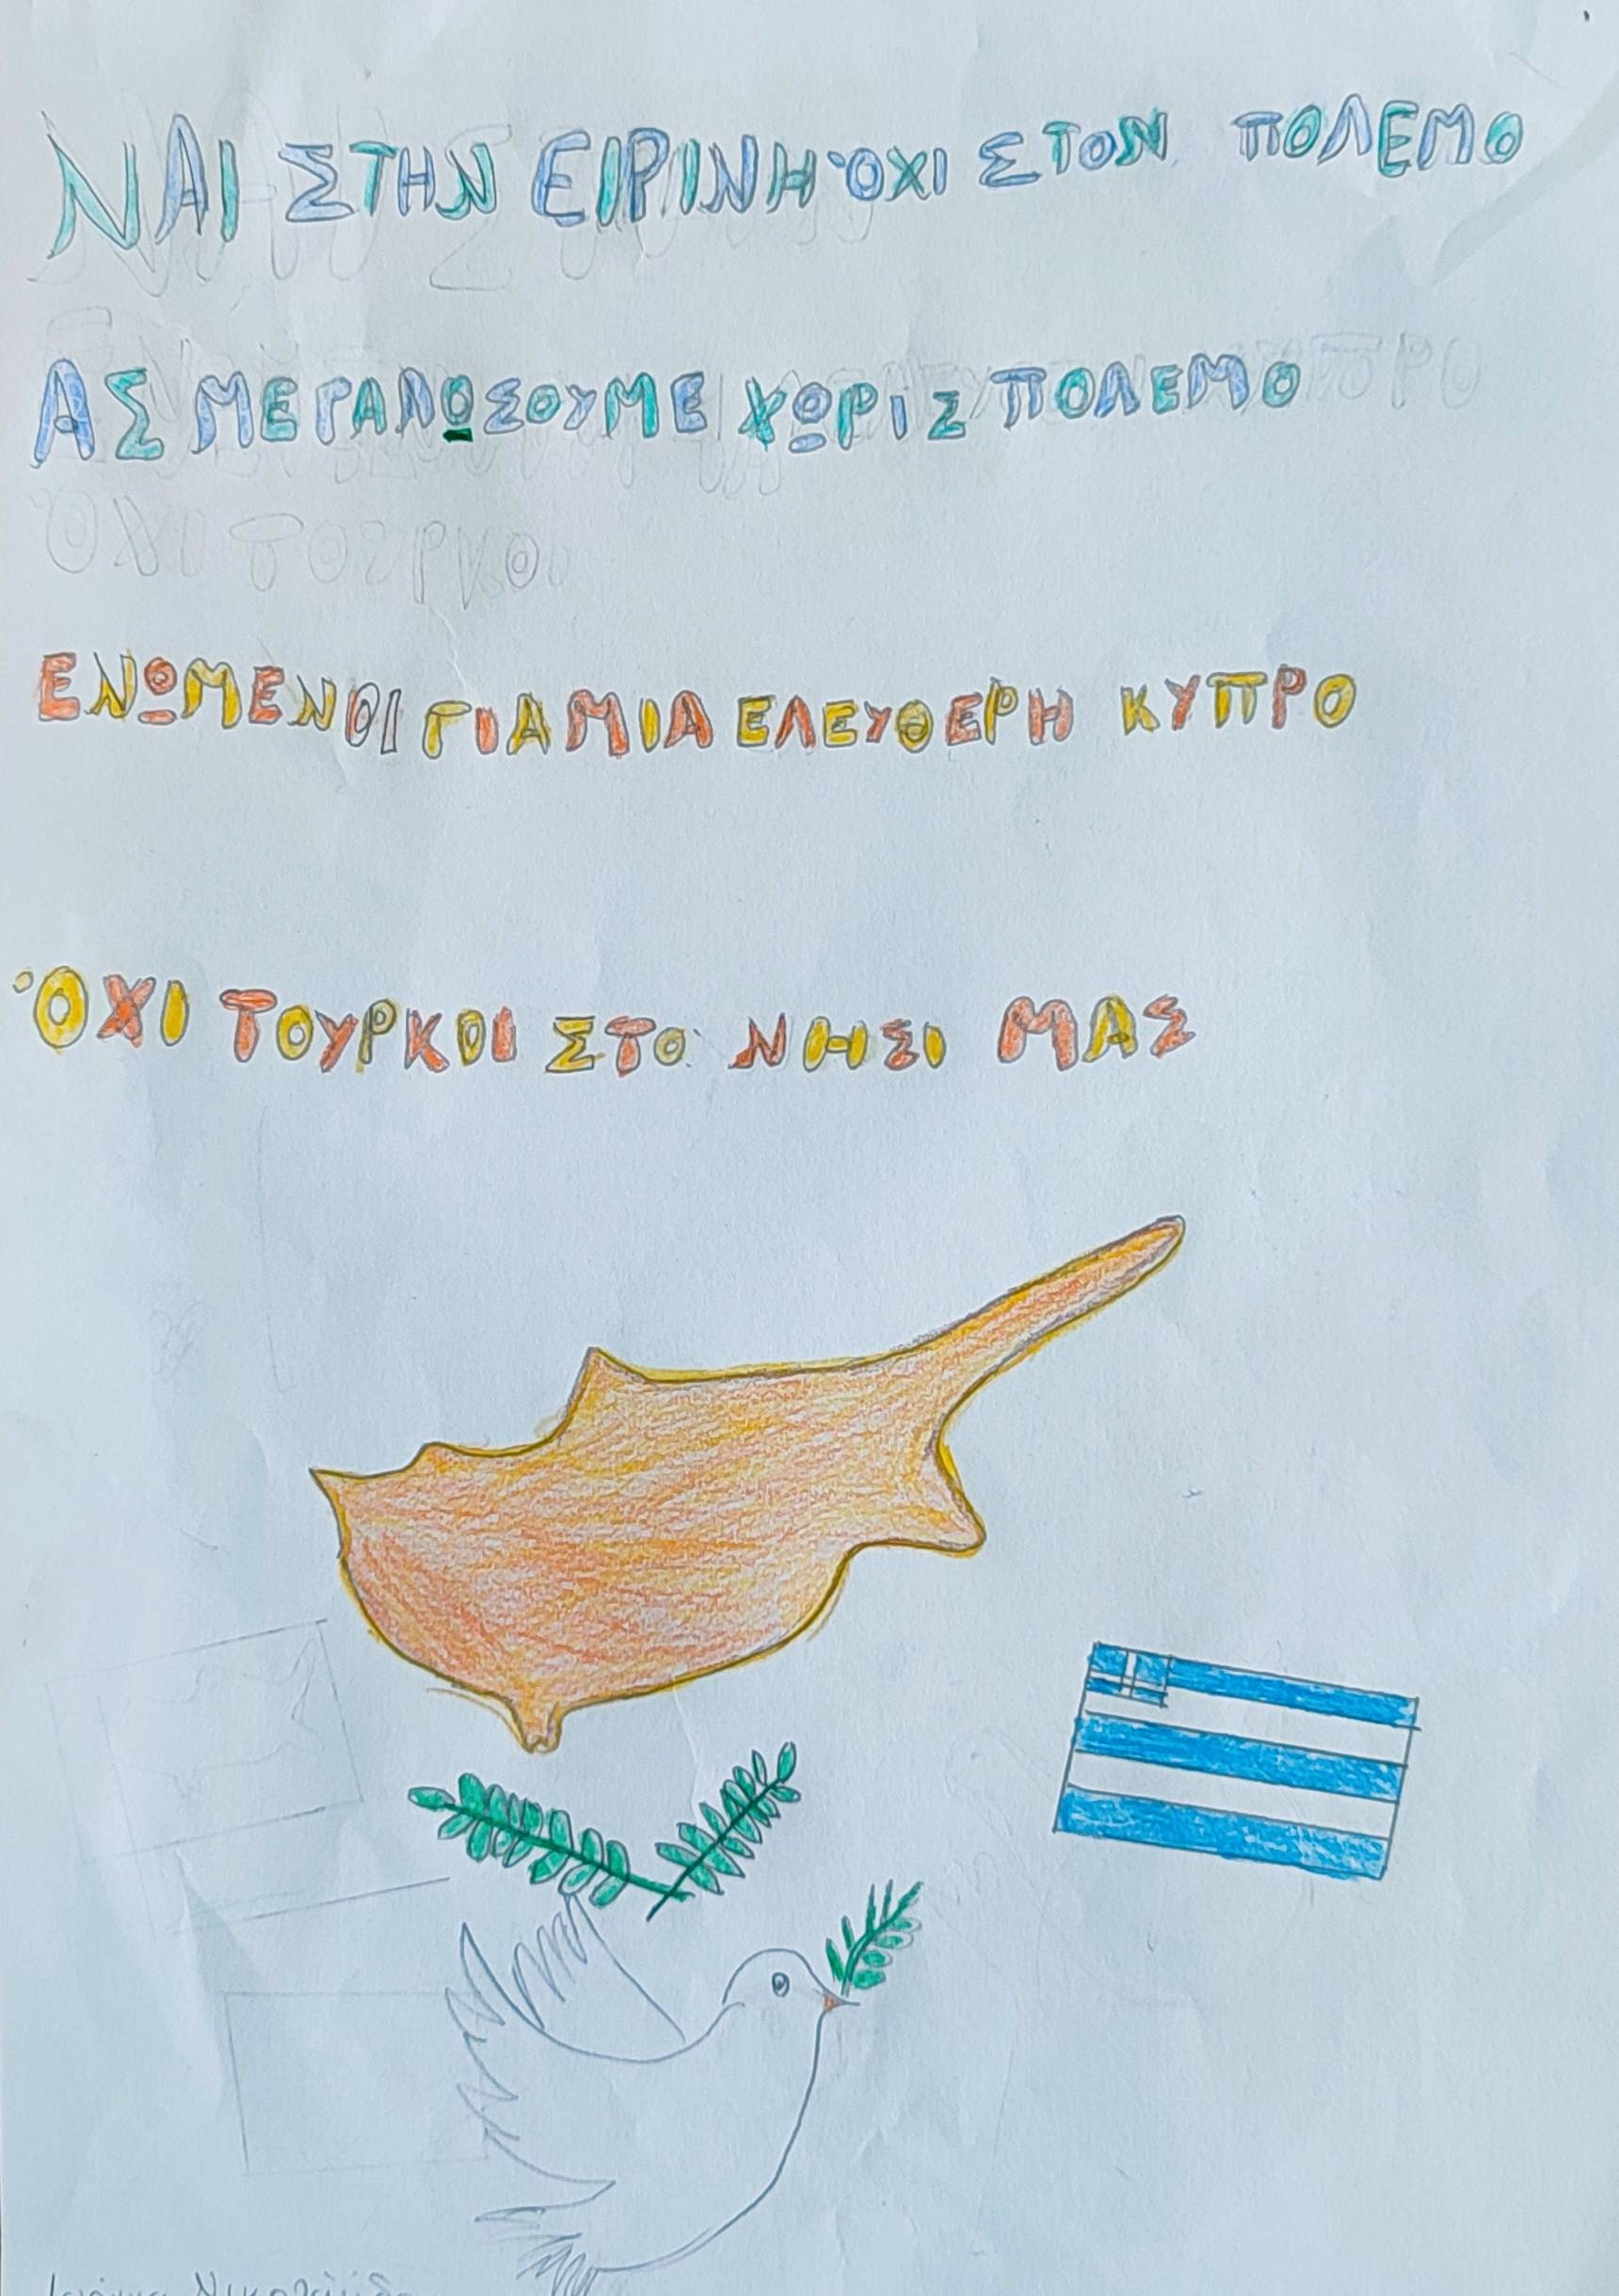 ΝΑΙ ΣΤΗΝ ΕΙΡΙΝΗ ΌΧΙ ΣΤΟΝ ΠΟΛΕΜΟ
ΑΣ ΜΕΓΑΛΩΣΟΥΜΕ ΧΩΡΙΣ ΠΟΛΕΜΟ
ΌΧΙ ΤΟΥΡΚΟΙ
ΕΝΩΜΕΝΟΙ ΓΙΑ ΜΙΑ ΕΛΕΥΘΕΡΗ ΚΥΠΡΟ
ΌΧΙ ΤΟΥΡΚΟΙ ΣΤΟ ΝΗΣΙ ΜΑΣ